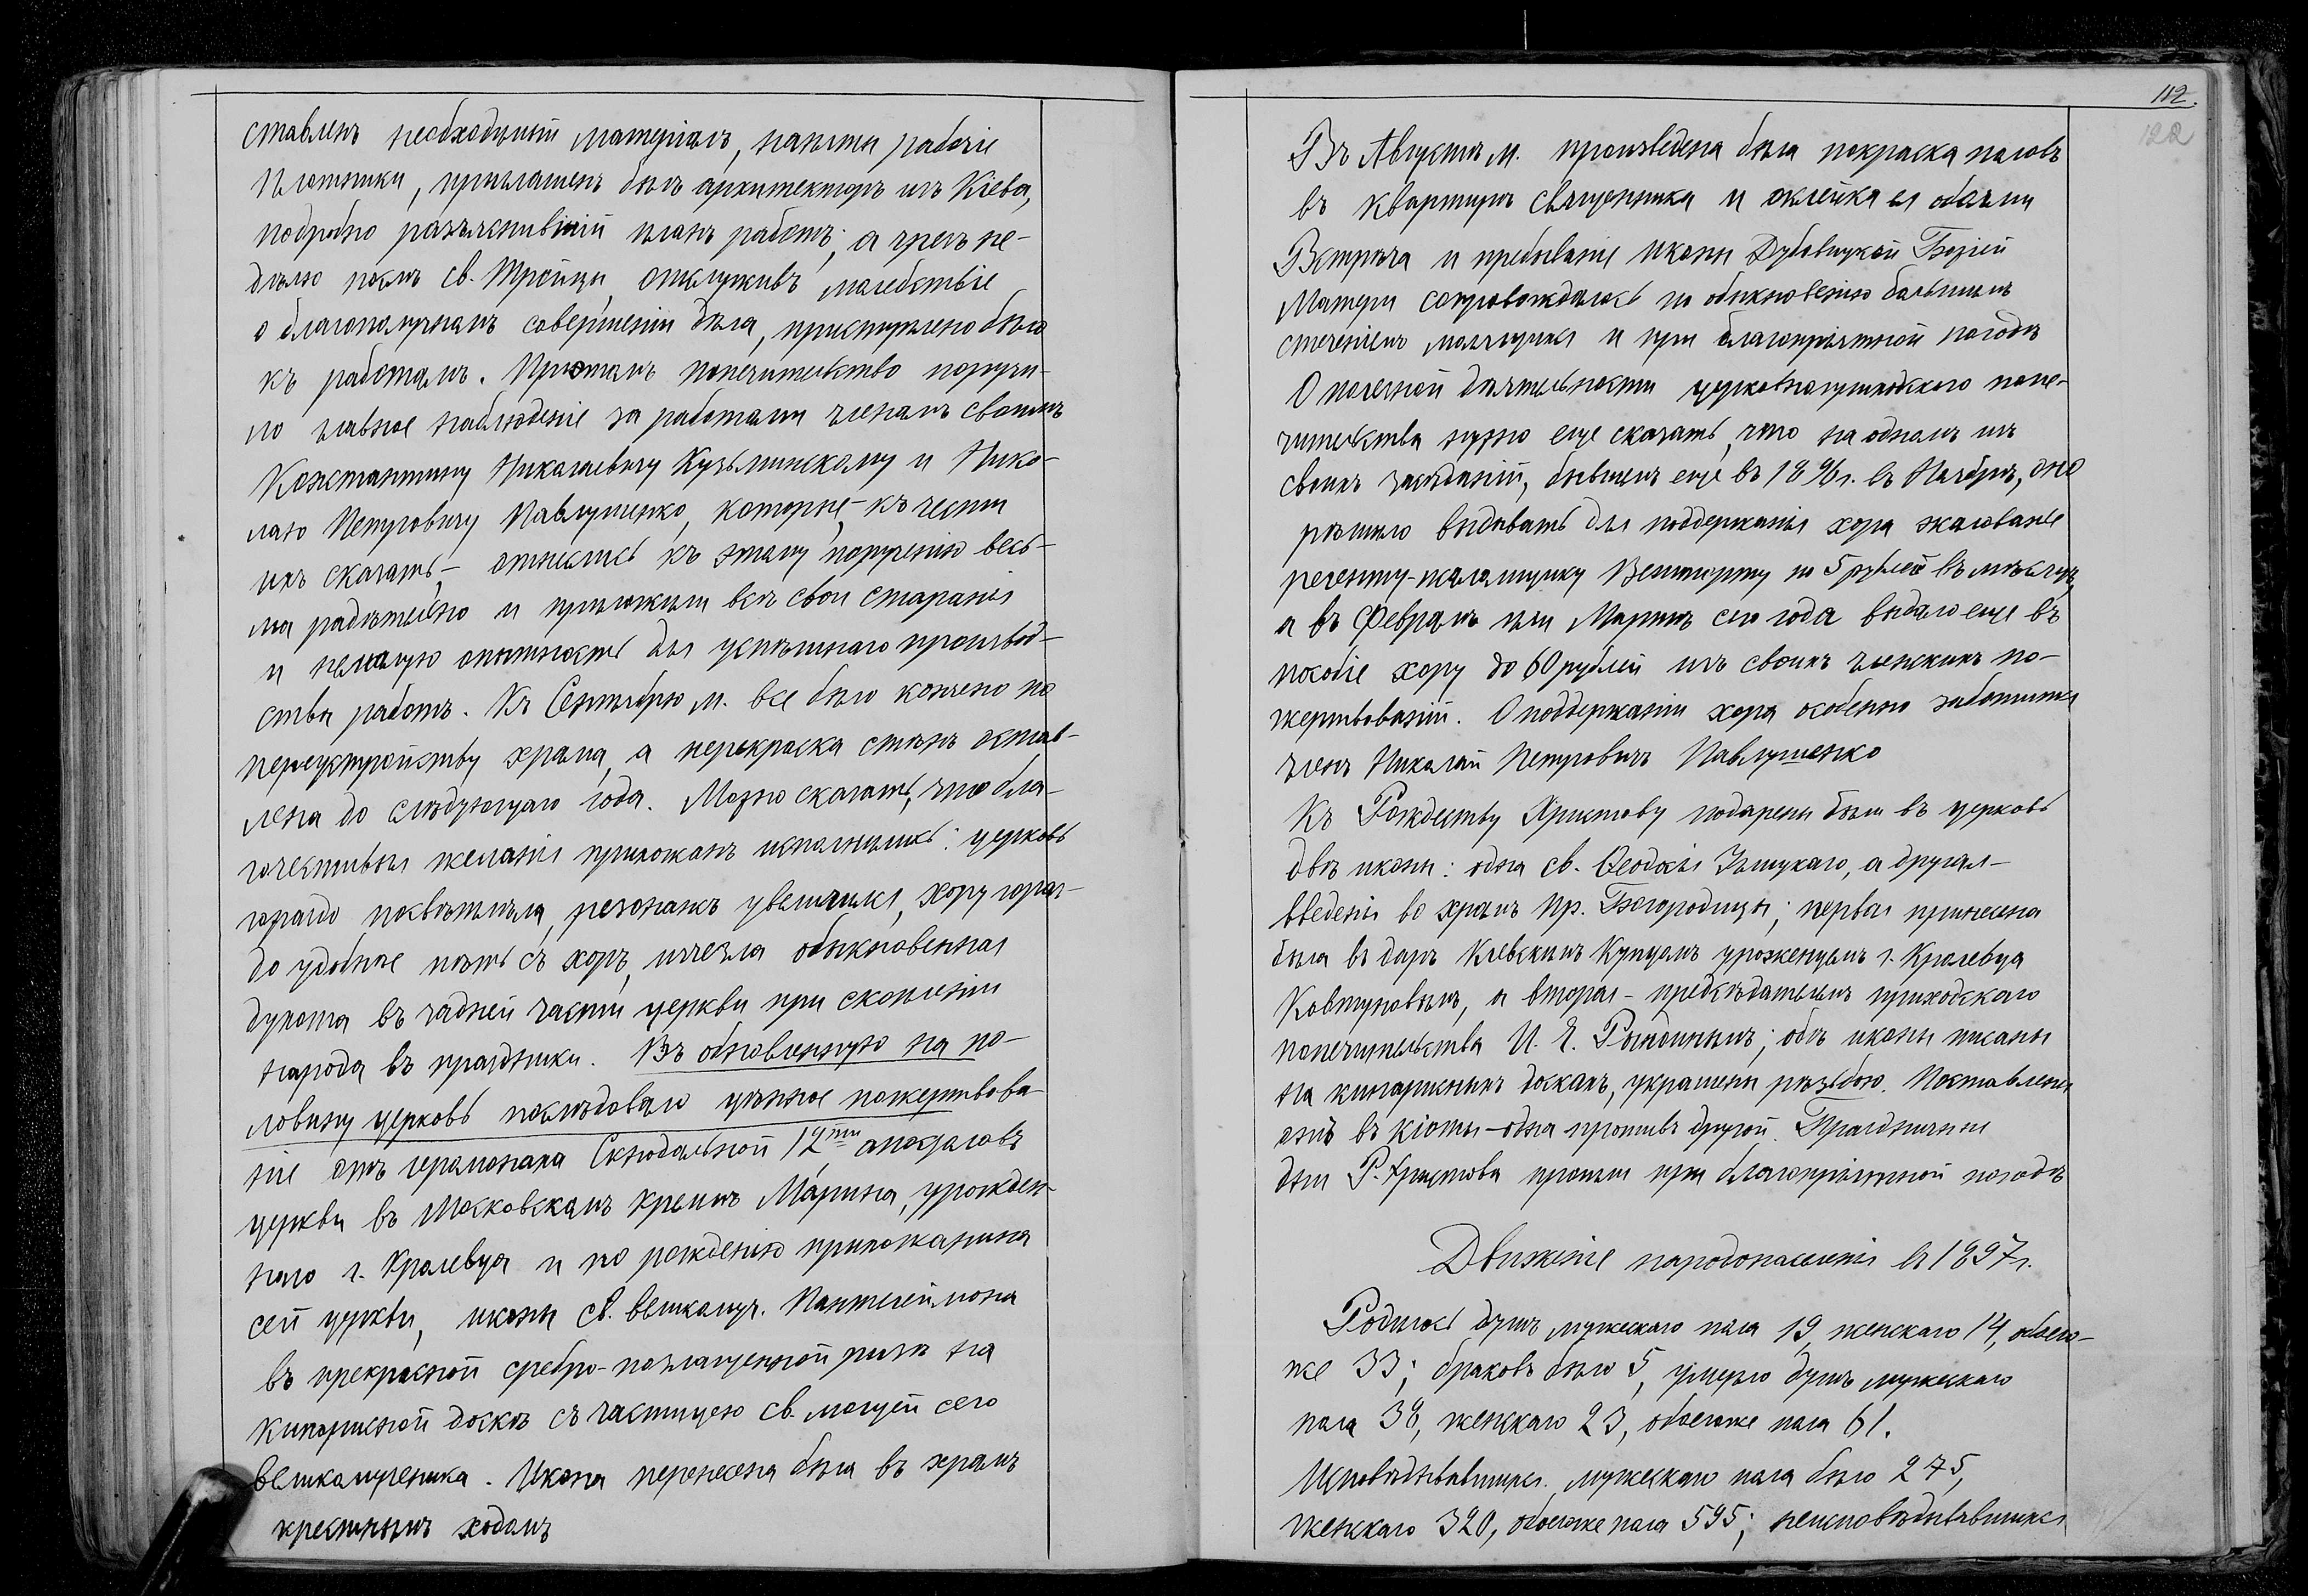 ставленъ необходимый матеріалъ, наняты рабочіе
плотники, приглашенъ былъ архитекторъ изъ Кіева,
подробно разъяснившій планъ работъ; а чрезъ не-
дѣлю послѣ св. Тройцы, отслуживъ молебствіе
о благополучномъ совершеніи дѣла, приступлено было
къ работамъ. При этомъ попечительство поручи-
ло главное наблюденіе за работами членамъ своимъ
Константину Николаевичу Кузьминскому и Нико-
лаю Петровичу Павлушенко, которые, - къ чести
ихъ сказать, - отнеслись къ этому порученію весь-
ма радѣтельно и приложили всѣ свои старанія
и немалую опытность для успѣшнаго производ-
ства работъ. Къ Сентябрю м. все было кончено по
переустройству храма, а перекраска стѣнъ остав-
лена до слѣдующаго года. Можно сказать, что бла-
гочестивыя желанія прихожанъ исполнились: церковь
гораздо посвѣтлѣла, резонансъ увеличился, хору гораз-
до удобнѣе пѣть съ хоръ, изчезла обыкновенная
духота въ задней части церкви при скопленіи
народа въ праздники. Въ обновленную на по-
ловину церковь послѣдовало цѣнное пожертвова-
ніе отъ іеромонаха Сѵнодальной 12ти апостоловъ
церкви въ Московскомъ Кремлѣ Марина, урожден-
наго г. Кролевца и по рожденію прихожанина
сей церкви, иконы св. великомуч. Пантелеймона
въ прекрасной сребро-позлащенной ризѣ на
кипарисной доскѣ съ частицею св. мощей сего
великомученика. Икона перенесена была въ храмъ
крестнымъ ходомъ
112.
122
Въ Августѣ м. произведена была покраска половъ
въ квартирѣ священника и оклейка ея обоями
Встрѣча и пребываніе иконы Дубовицкой Божіей
Матери сопровождалась по обыкновенію большимъ
стеченіемъ молящихся и при благопріятной погодѣ
О полезной дѣятельности церковноприходскаго попе-
чительства нужно еще сказать, что на одномъ изъ
своихъ засѣданій, бывшемъ еще въ 1896 г. въ Ноябрѣ, оно
рѣшило выдавать для поддержанія хора жалованье
регенту-псаломщику по 5 рублей въ мѣсяцъ,
а въ Февралѣ или Мартѣ сего года выдало еще въ
пособіе хору до 60 рублей изъ своихъ членскихъ по-
жертвованій. О поддержаніи хора особенно заботится
членъ Николай Петровичъ Павлушенко
Къ Рождеству Христову подарены были въ церковь
двѣ иконы: одна св. Ѳеодосія Углицкаго, а другая -
введенія во храмъ пр. Богородицы; первая принесена
была въ даръ Кіевскимъ купцомъ уроженцемъ г. Кролевца
Ковтуновымъ, а вторая - предсѣдателемъ приходскаго
попечительства И. Е. Рындинымъ; обѣ иконы писаны
на кипарисныхъ доскахъ, украшены рѣзьбою. Поставлены
онѣ въ кіоты - одна противъ другой. Праздничные
дни Р. Христова прошли при благопріятной погодѣ
Движеніе народонаселенія въ 1897 г.
Родилось душъ мужескаго пола 19, женскаго 14, обоего-
же 33; браковъ было 5, умерло душъ мужескаго
пола 38, женскаго 23, обоегоже пола 61.
Исповѣдывавшихся мужескаго пола было 275,
женскаго 320, обоегоже пола 595; неисповѣдывавшихся